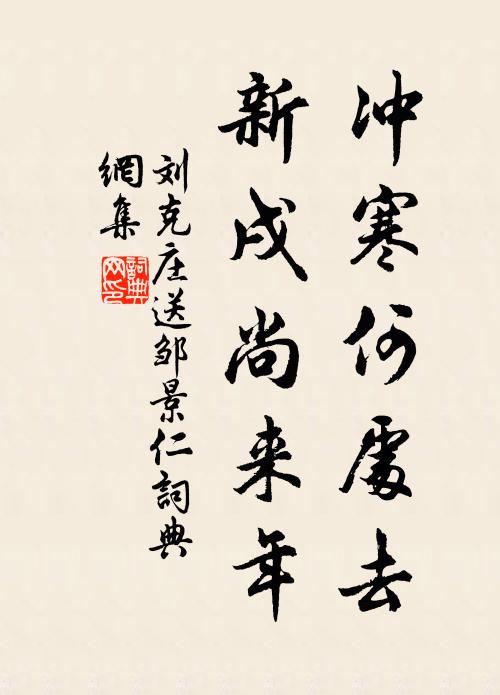 冲寒何處去
新戍尚来年
刘克庄送邹景仁詞典
網集
詞典網印